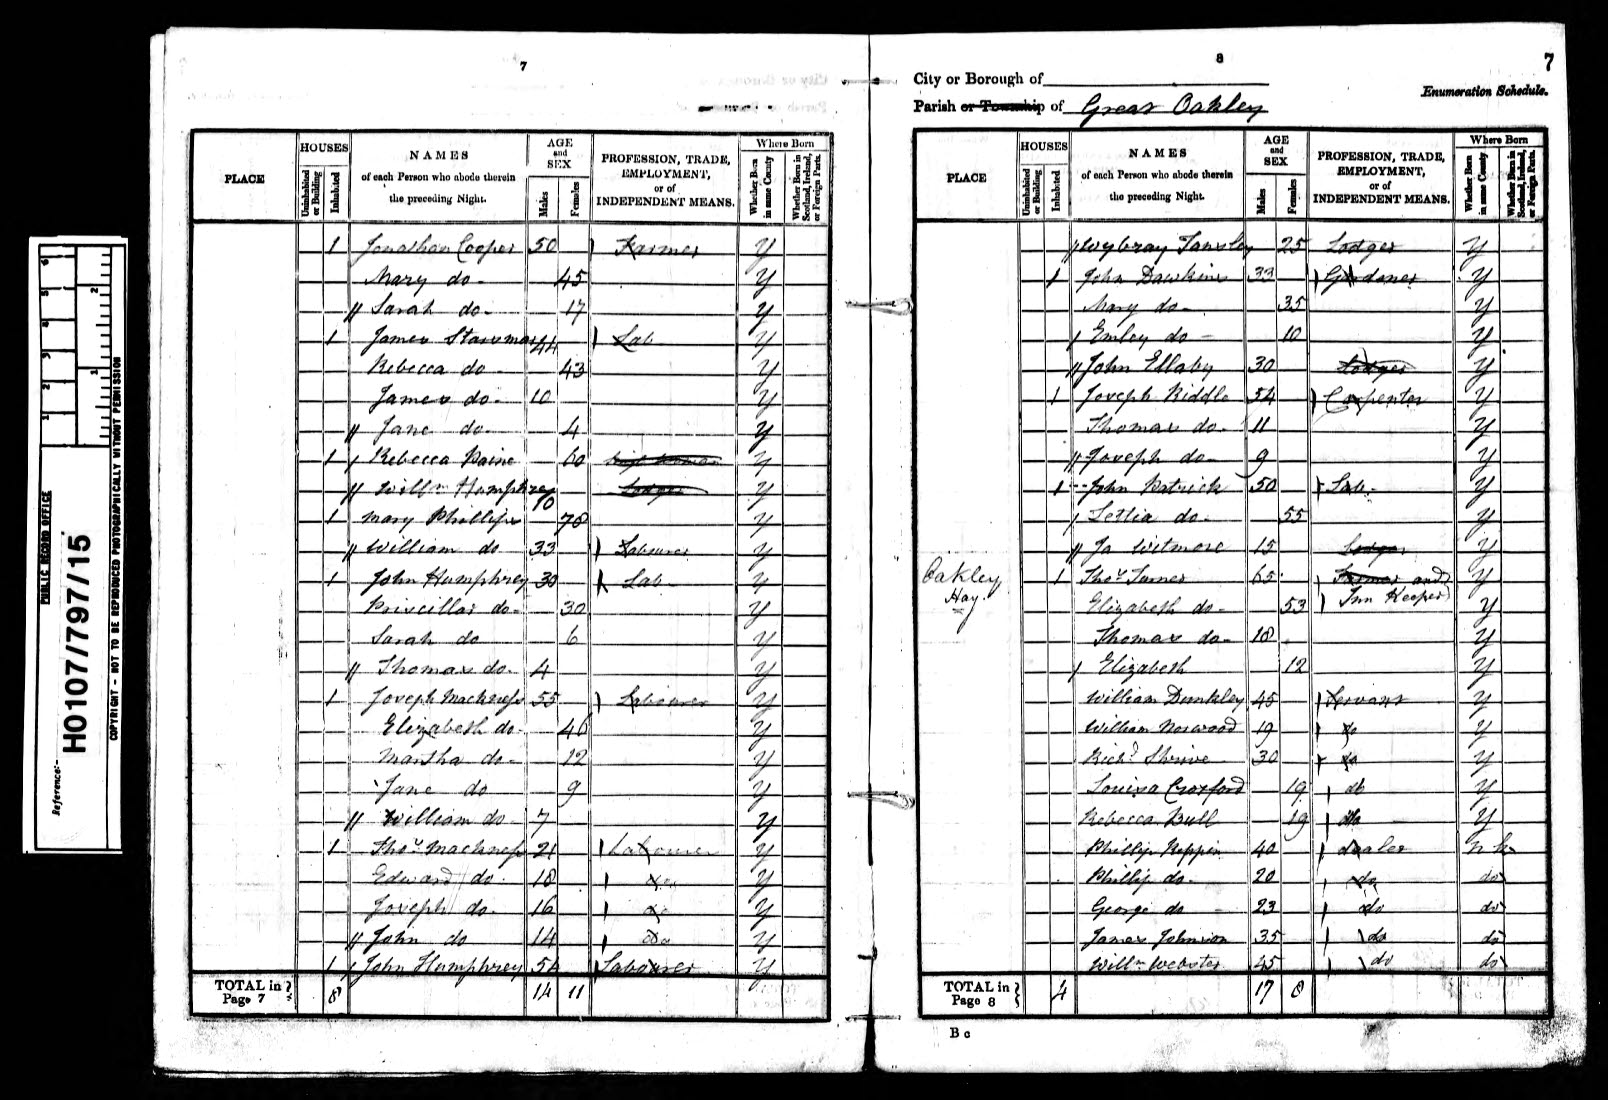 PUBLIC RECORD OFFICE
Reference:-
HO107/797/15
COPYRIGHT - NOT TO BE REPRODUCED PHOTOGRAPHICALLY WITHOUT PERMISSION
7
PLACE
HOUSES
Uninhabited or Building
Inhabited
NAMES
of each Person who abode therein
the preceding Night.
AGE
and
SEX
Males
Females
PROFESSION, TRADE,
EMPLOYMENT,
or of
INDEPENDENT MEANS.
Where Born
Whether Born in same County
Whether Born in Scotland, Ireland, or Foreign Parts.
1 Jonathan Cooper 50 Farmer Y
Mary do 45 Y
Sarah do 17 Y
1 James 44 Lab Y
Rebecca do 43 Y
James do 10 Y
Jane do 4 Y
1 Rebecca Paine 60 Y
Willm Humphrey 70 Lodger Y
1 Mary Phillips 78 Y
William do 33 Labourer Y
1 John Humphrey 30 Lab Y
Priscillar do 30 Y
Sarah do 6 Y
Thomas do 4 Y
1 Joseph Machness 55 Labourer Y
Elizabeth do 46 Y
Martha do 12 Y
Jane do 9 Y
William do 7 Y
1 Thos Machness 21 Labourer Y
Edward do 18 do Y
Joseph do 16 do Y
John do 14 do Y
1 John Humphrey 54 Labourer Y
TOTAL in Page 7 8 14 11
8
7
City or Borough of
Parish or Township of Great Oakley
Enumeration Schedule.
PLACE
HOUSES
Uninhabited or Building
Inhabited
NAMES
of each Person who abode therein
the preceding Night.
AGE
and
SEX
Males
Females
PROFESSION, TRADE,
EMPLOYMENT,
or of
INDEPENDENT MEANS.
Where Born
Whether Born in same County
Whether Born in Scotland, Ireland, or Foreign Parts.
Wybray Tansley 25 Lodger Y
1 John Dawkins 33 Gardener Y
Mary do 35 Y
Emley do 10 Y
John Ellaby 30 Lodger Y
1 Joseph Riddle 54 Carpenter Y
Thomas do 11 Y
Joseph do 9 Y
1 John Patrick 50 Lab Y
Letlia do 55 Y
Ja Witmore 15 Lodger Y
Oakley Hay 1 Thos Turner 65 Farmer and Y
Elizabeth do 53 Inn Keeper Y
Thomas do 18 Y
Elizabeth 12 Y
William Dunkley 45 Servant Y
William Norwood 19 do Y
Richd Shrive 30 do Y
Louisa Croxford 19 do Y
Rebecca Bull 19 do Y
Phillip 40 dealer n k
Phillip do 20 do do
George do 23 do do
James Johnson 35 do do
Willm Webster 45 do do
TOTAL in Page 8 4 17 8
B c